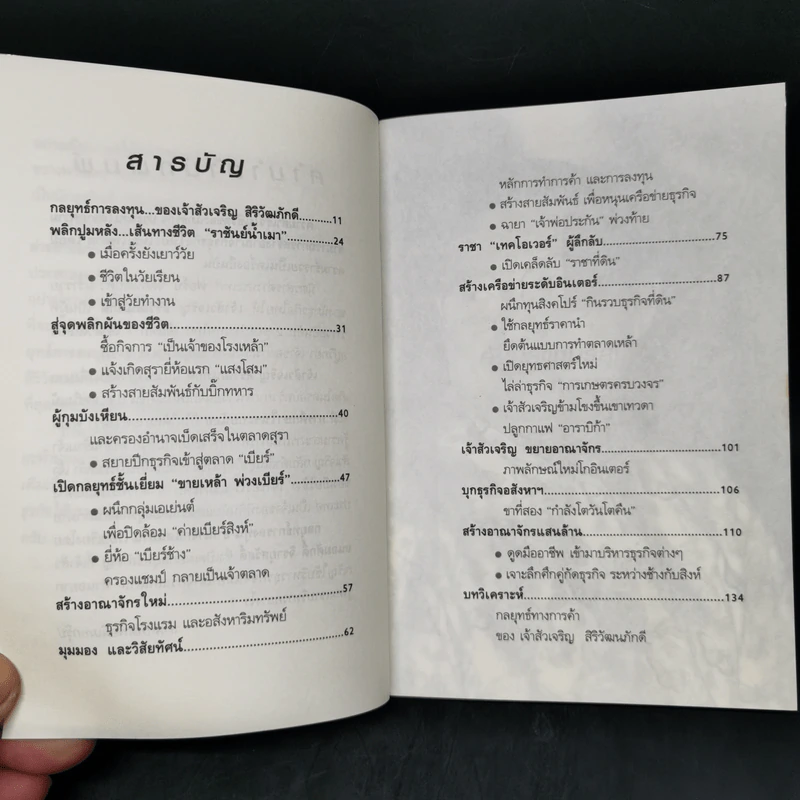 สารบัญ
กลยุทธ์การลงทุน...ของเจ้าสัวเจริญ สิริวัฒภักดี..........11
พลิกปูมหลัง...เส้นทางชีวิต "ราชันย์น้ำเมา"..........24
● เมื่อครั้งยังเยาว์วัย
● ชีวิตในวัยเรียน
● เข้าสู่วัยทำงาน
สู่จุดพลิกผันของชีวิต..........31
ซื้อกิจการ "เป็นเจ้าของโรงเหล้า"
● แจ้งเกิดสุรายี่ห้อแรก "แสงโสม"
● สร้างสายสัมพันธ์กับบิ๊กทหาร
ผู้กุมบังเหียน..........40
และครองอำนาจเบ็ดเสร็จในตลาดสุรา
● สยายปีกธุรกิจเข้าสู่ตลาด "เบียร์"
เปิดกลยุทธ์ชั้นเยี่ยม "ขายเหล้า พ่วงเบียร์"..........47
● ผนึกกลุ่มเอเย่นต์
เพื่อปิดล้อม "ค่ายเบียร์สิงห์"
● ยี่ห้อ "เบียร์ช้าง"
ครองแชมป์ กลายเป็นเจ้าตลาด
สร้างอาณาจักรใหม่..........57
ธุรกิจโรงแรม และอสังหาริมทรัพย์
มุมมอง และวิสัยทัศน์..........62
หลักการทำการค้า และการลงทุน
● สร้างสายสัมพันธ์ เพื่อหนุนเครือข่ายธุรกิจ
● ฉายา "เจ้าพ่อประกัน" พ่วงท้าย
ราชา "เทคโอเวอร์" ผู้ลึกลับ..........75
● เปิดเคล็ดลับ "ราชาที่ดิน"
สร้างเครือข่ายระดับอินเตอร์..........87
ผนึกทุนสิงคโปร์ "กินรวบธุรกิจที่ดิน"
● ใช้กลยุทธ์ราคานำ
ยึดต้นแบบการทำตลาดเหล้า
● เปิดยุทธศาสตร์ใหม่
ไล่ล่าธุรกิจ "การเกษตรครบวงจร"
● เจ้าสัวเจริญข้ามโขงขึ้นเขาเทวดา
ปลูกกาแฟ "อาราบิก้า"
เจ้าสัวเจริญ ขยายอาณาจักร..........101
ภาพลักษณ์ใหม่โกอินเตอร์
บุกธุรกิจอสังหาฯ..........106
ขาที่สอง "กำลังโตวันโตคืน"
สร้างอาณาจักรแสนล้าน..........110
● ดูดมืออาชีพ เข้ามาบริหารธุรกิจต่างๆ
● เจาะลึกศึกคู่กัดธุรกิจ ระหว่างช้างกับสิงห์
บทวิเคราะห์..........134
กลยุทธ์ทางการค้า
ของ เจ้าสัวเจริญ สิริวัฒนภักดี